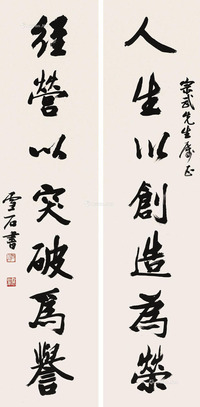 人生以創造為榮
宗武先生屬正
径營以突破爲譽
雪石書